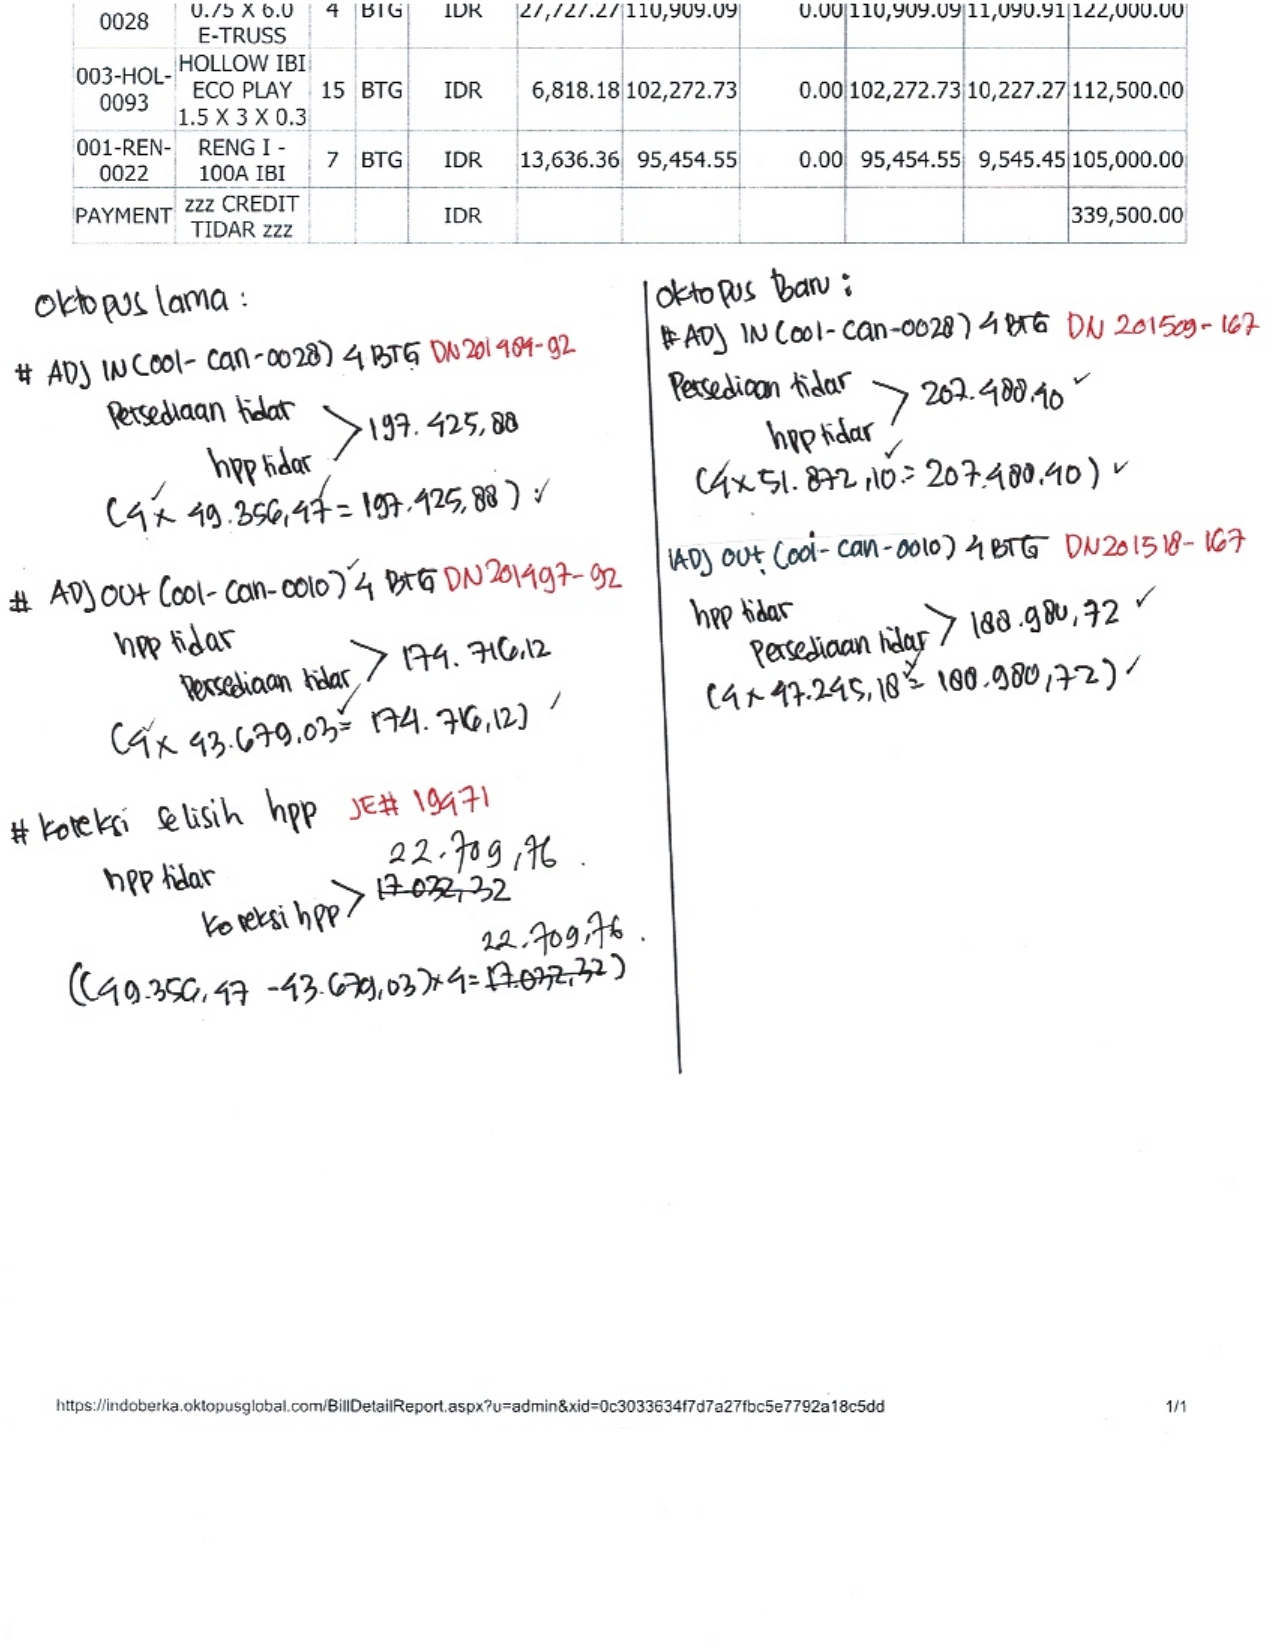 0028 0.75 X 6.0 E-TRUSS 4 BTG IDR 27,727.27 110,909.09 0.00 110,909.09 11,090.91 122,000.00
003-HOL-0093 HOLLOW IBI ECO PLAY 1.5 X 3 X 0.3 15 BTG IDR 6,818.18 102,272.73 0.00 102,272.73 10,227.27 112,500.00
001-REN-0022 RENG I - 100A IBI 7 BTG IDR 13,636.36 95,454.55 0.00 95,454.55 9,545.45 105,000.00
PAYMENT zzz CREDIT TIDAR zzz IDR 339,500.00
Oktopus lama :
# ADJ IN (001-can-0028) 4 BTG DN 201484-92
Persediaan tidar
197.425,88
hpp tidar
(4 x 49.356,47 = 197.425,88) ✓
# ADJ OUT (001-can-0010) 4 BTG DN 201497-92
hpp tidar
174.716,12
Persediaan tidar
(4 x 43.679,03 = 174.716,12)
# Koreksi selisih hpp JE# 19471
22.709,76
hpp tidar
17.032,32
Koreksi hpp
22.709,76
((49.356,47 - 43.679,03) x 4 = 17.032,32)
Oktopus Baru :
# ADJ IN (001-can-0028) 4 BTG DN 201509-167
Persediaan tidar
207.488,40 ✓
hpp tidar
(4 x 51.872,10 = 207.488,40) ✓
ADJ OUT (001-can-0010) 4 BTG DN 201518-167
hpp tidar
188.980,72 ✓
Persediaan tidar
(4 x 47.245,18 = 188.980,72) ✓
https://indoberka.oktopusglobal.com/BillDetailReport.aspx?u=admin&xid=0c3033634f7d7a27fbc5e7792a18c5dd 1/1